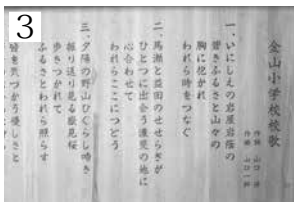 3
金山小学校校歌
一、いにしえの岩屋岩蔭の
碧きふるさと山々の
胸に抱かれ
われら時をつなぐ
二、馬瀬と益田のせせらぎが
ひとつに出会う濃飛の地に
心合わせて
われらここにつどう
三、夕陽の野山ひぐらし鳴き
振り返り見る嶽見桜
歩きつかれて
ふるさとわれら照らす